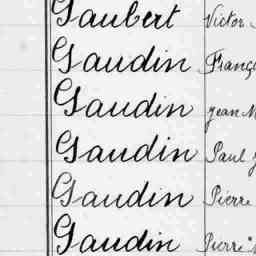 Gaubert Victor
Gaudin Franç
Gaudin Jean M
Gaudin Paul J
Gaudin Pierre
Gaudin Pierre